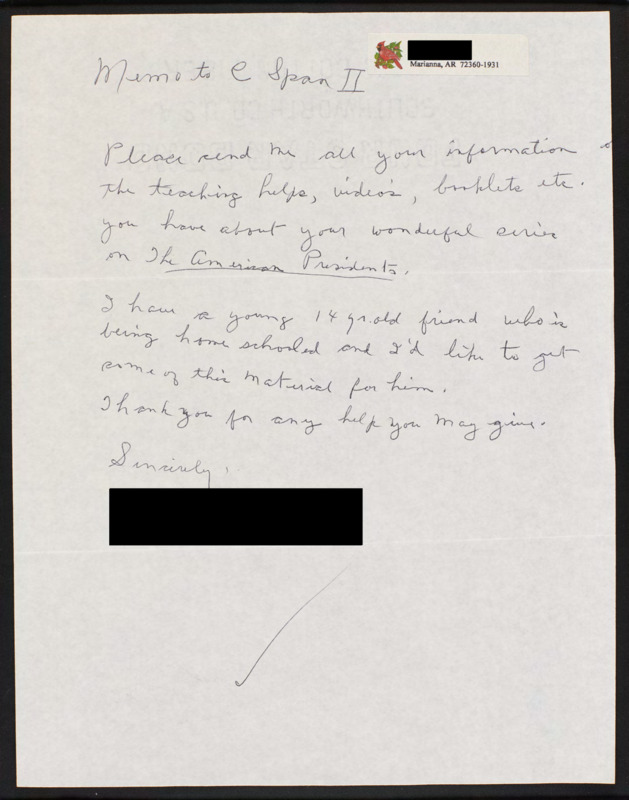 Marianna, AR 72360-1931
Memo to C Span II
Please send me all your information
the teaching helps, video's, booklets etc.
you have about your wonderful series
on The American Presidents.
I have a young 14 yr. old friend who is
being home schooled and I'd like to get
some of this material for him.
Thank you for any help you may give.
Sincerely,